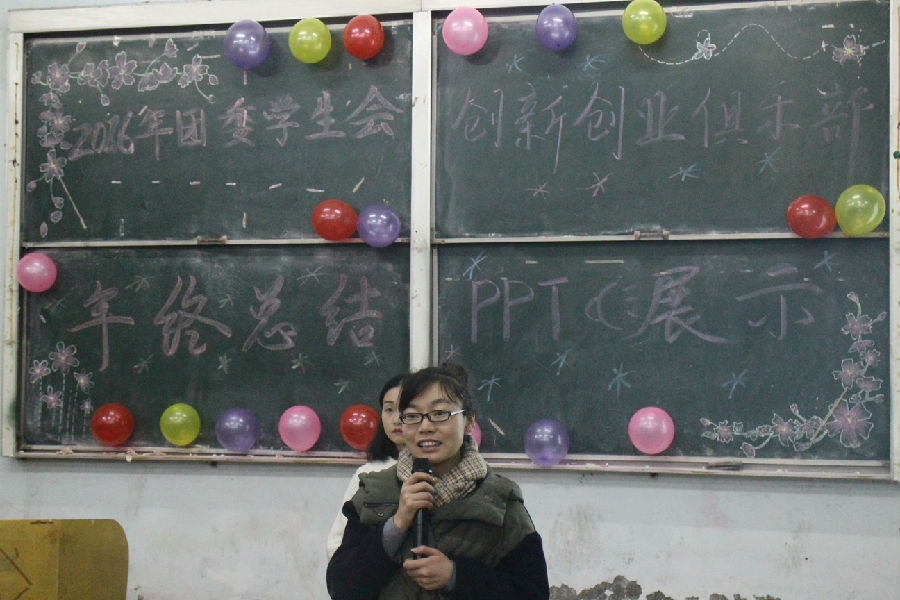 2016年团委学生会
创新创业俱乐部
年终总结
PPT展示